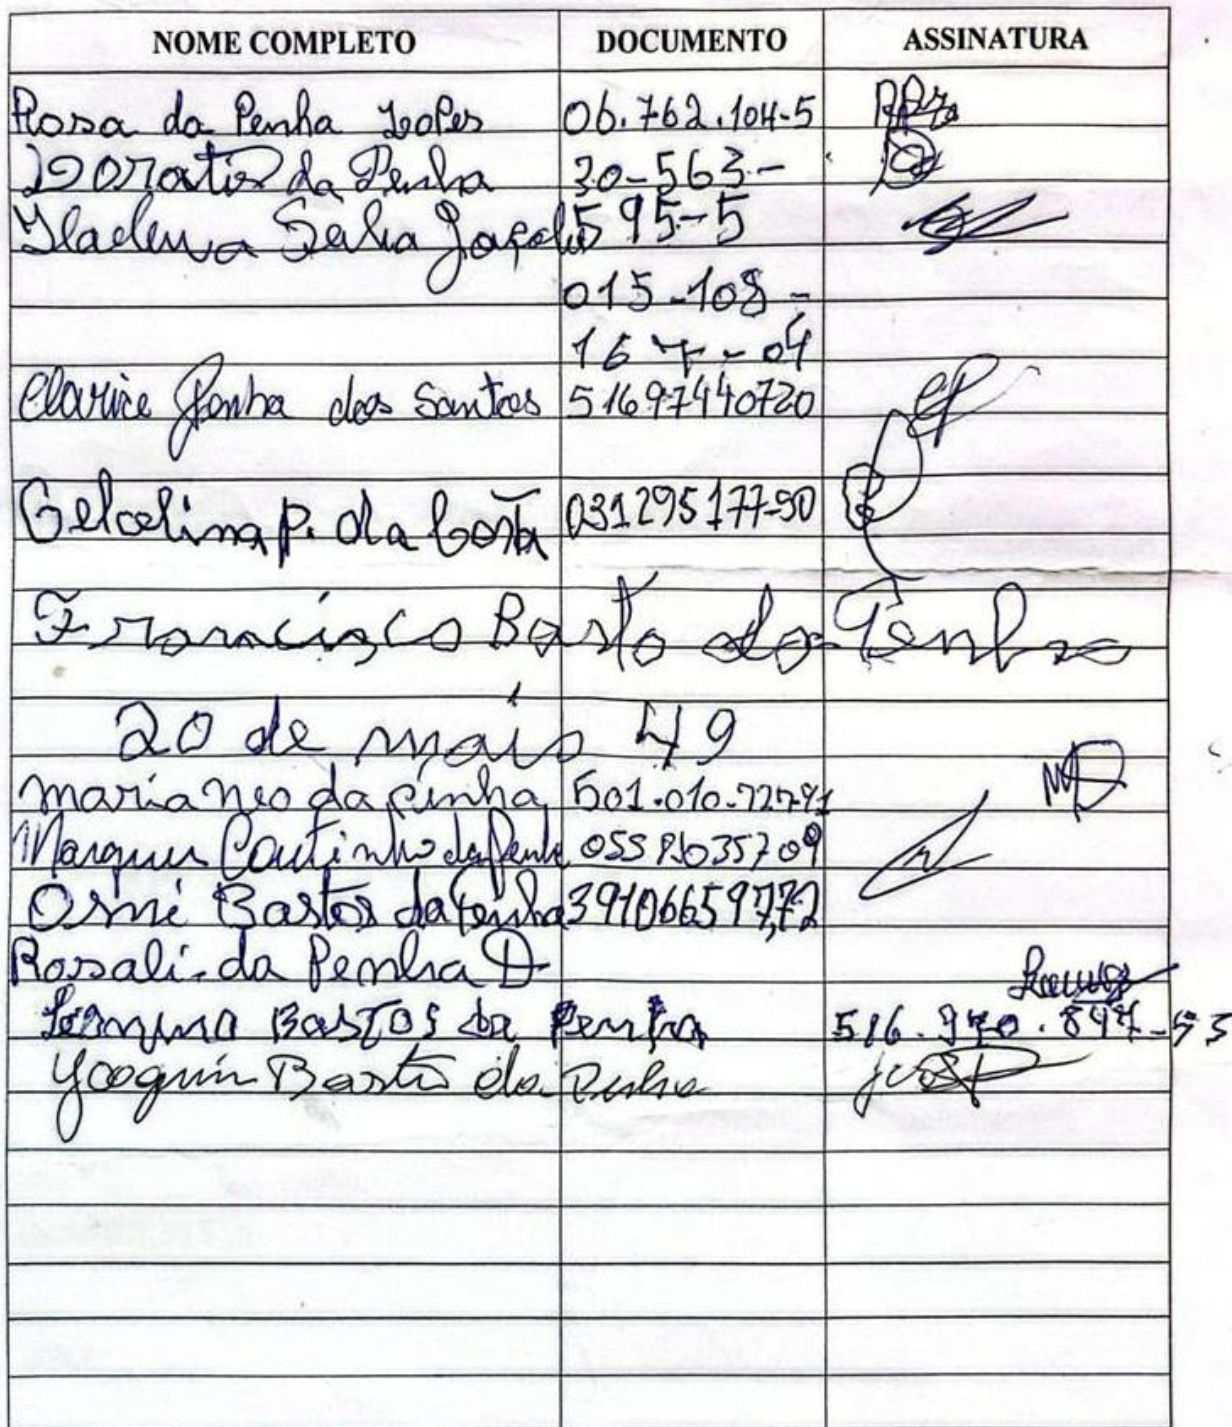 NOME COMPLETO DOCUMENTO ASSINATURA
Rosa da Penha Lopes 06.762.104-5
da Penha 30-563-
595-5
015-108-
167-04
Clarice Penha dos Santos 51697440720
Gelcelina P. da Costa 031295177-90
Francisco Basto da Penha
20 de maio 49
maria neo da pinha 501.010.727-91
Marques Coutinho da Penha
Osmé Bastos da Penha 39106659772
Rosali da Penha D
Bastos da Penha
Yoaquin Basto da Penha